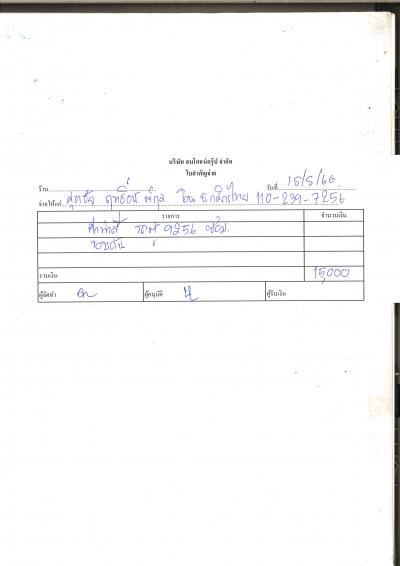 บริษัท สมโภชน์กรุ๊ป จำกัด
ใบสำคัญจ่าย
ร้าน วันที่ 15/5/66
จ่ายให้แก่ ศุภชัย โอน ธ.กสิกรไทย 110-239-7256
รายการ จำนวนเงิน
ค่าทำสี รถผ้า 9256
รวมเงิน 15,000
ผู้จัดทำ ผู้อนุมัติ ผู้รับเงิน